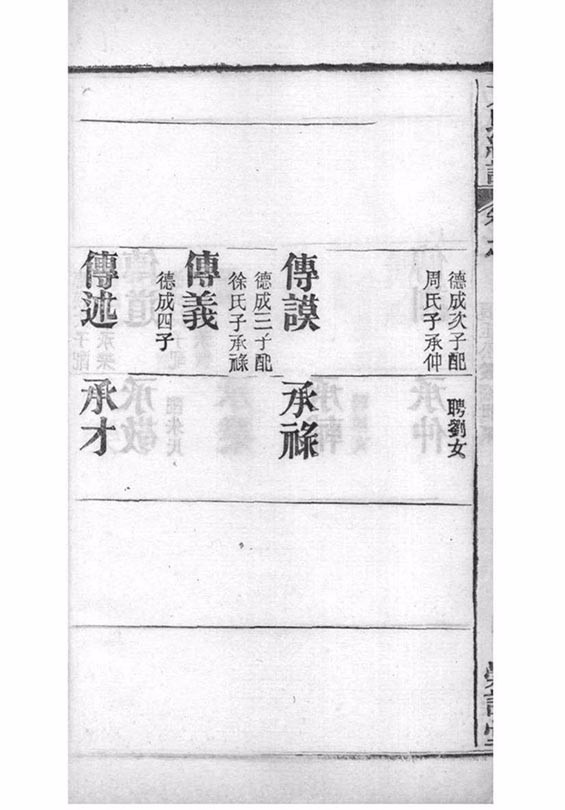 德成次子配
周氏子承仲
聘劉女
傳謨
德成三子配
徐氏子承祿
承祿
傳義
德成四子
傳述
承才